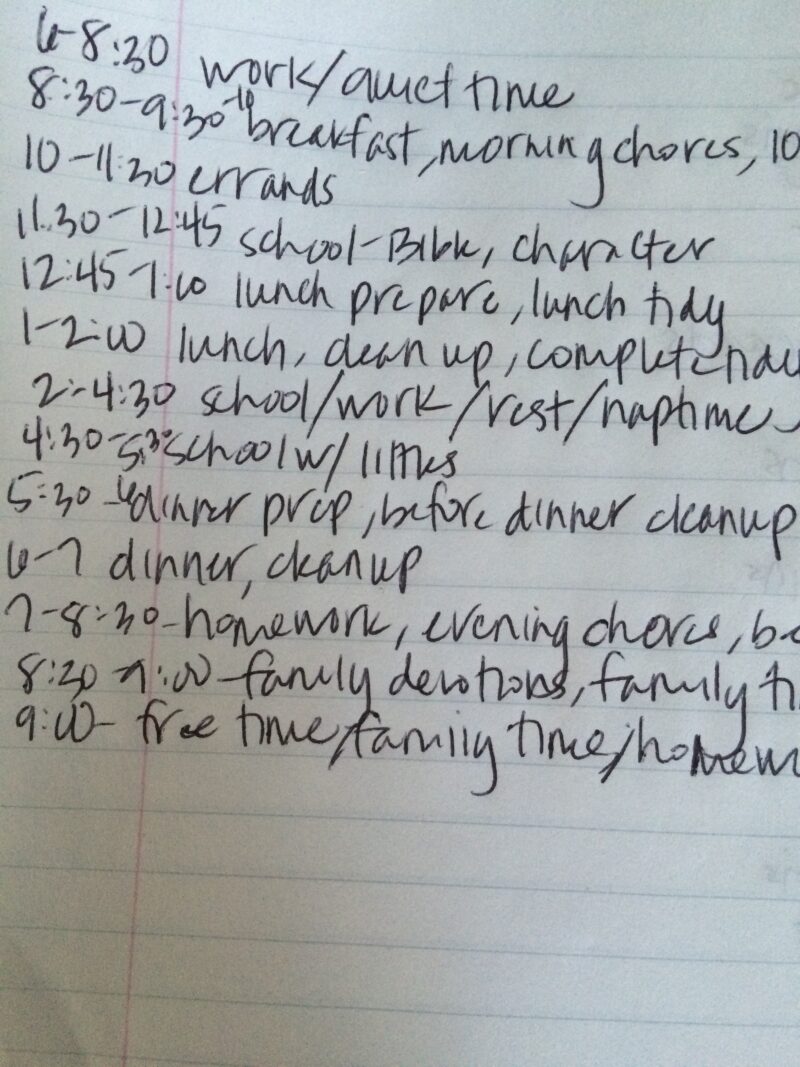 6-8:30 work/quiet time
8:30-9:30-10 breakfast, morning chores, 10
10-11:30 errands
11:30-12:45 school-Bible, character
12:45-1:00 lunch prepare, lunch tidy
1-2:00 lunch, clean up, complete
2:-4:30 school/work/rest/naptime
4:30-5:30 school w/ littles
5:30-6 dinner prep, before dinner cleanup
6-7 dinner, cleanup
7-8:30-homework, evening chores,
8:30-9:00-family devotions, family
9:00- free time/family time/homew